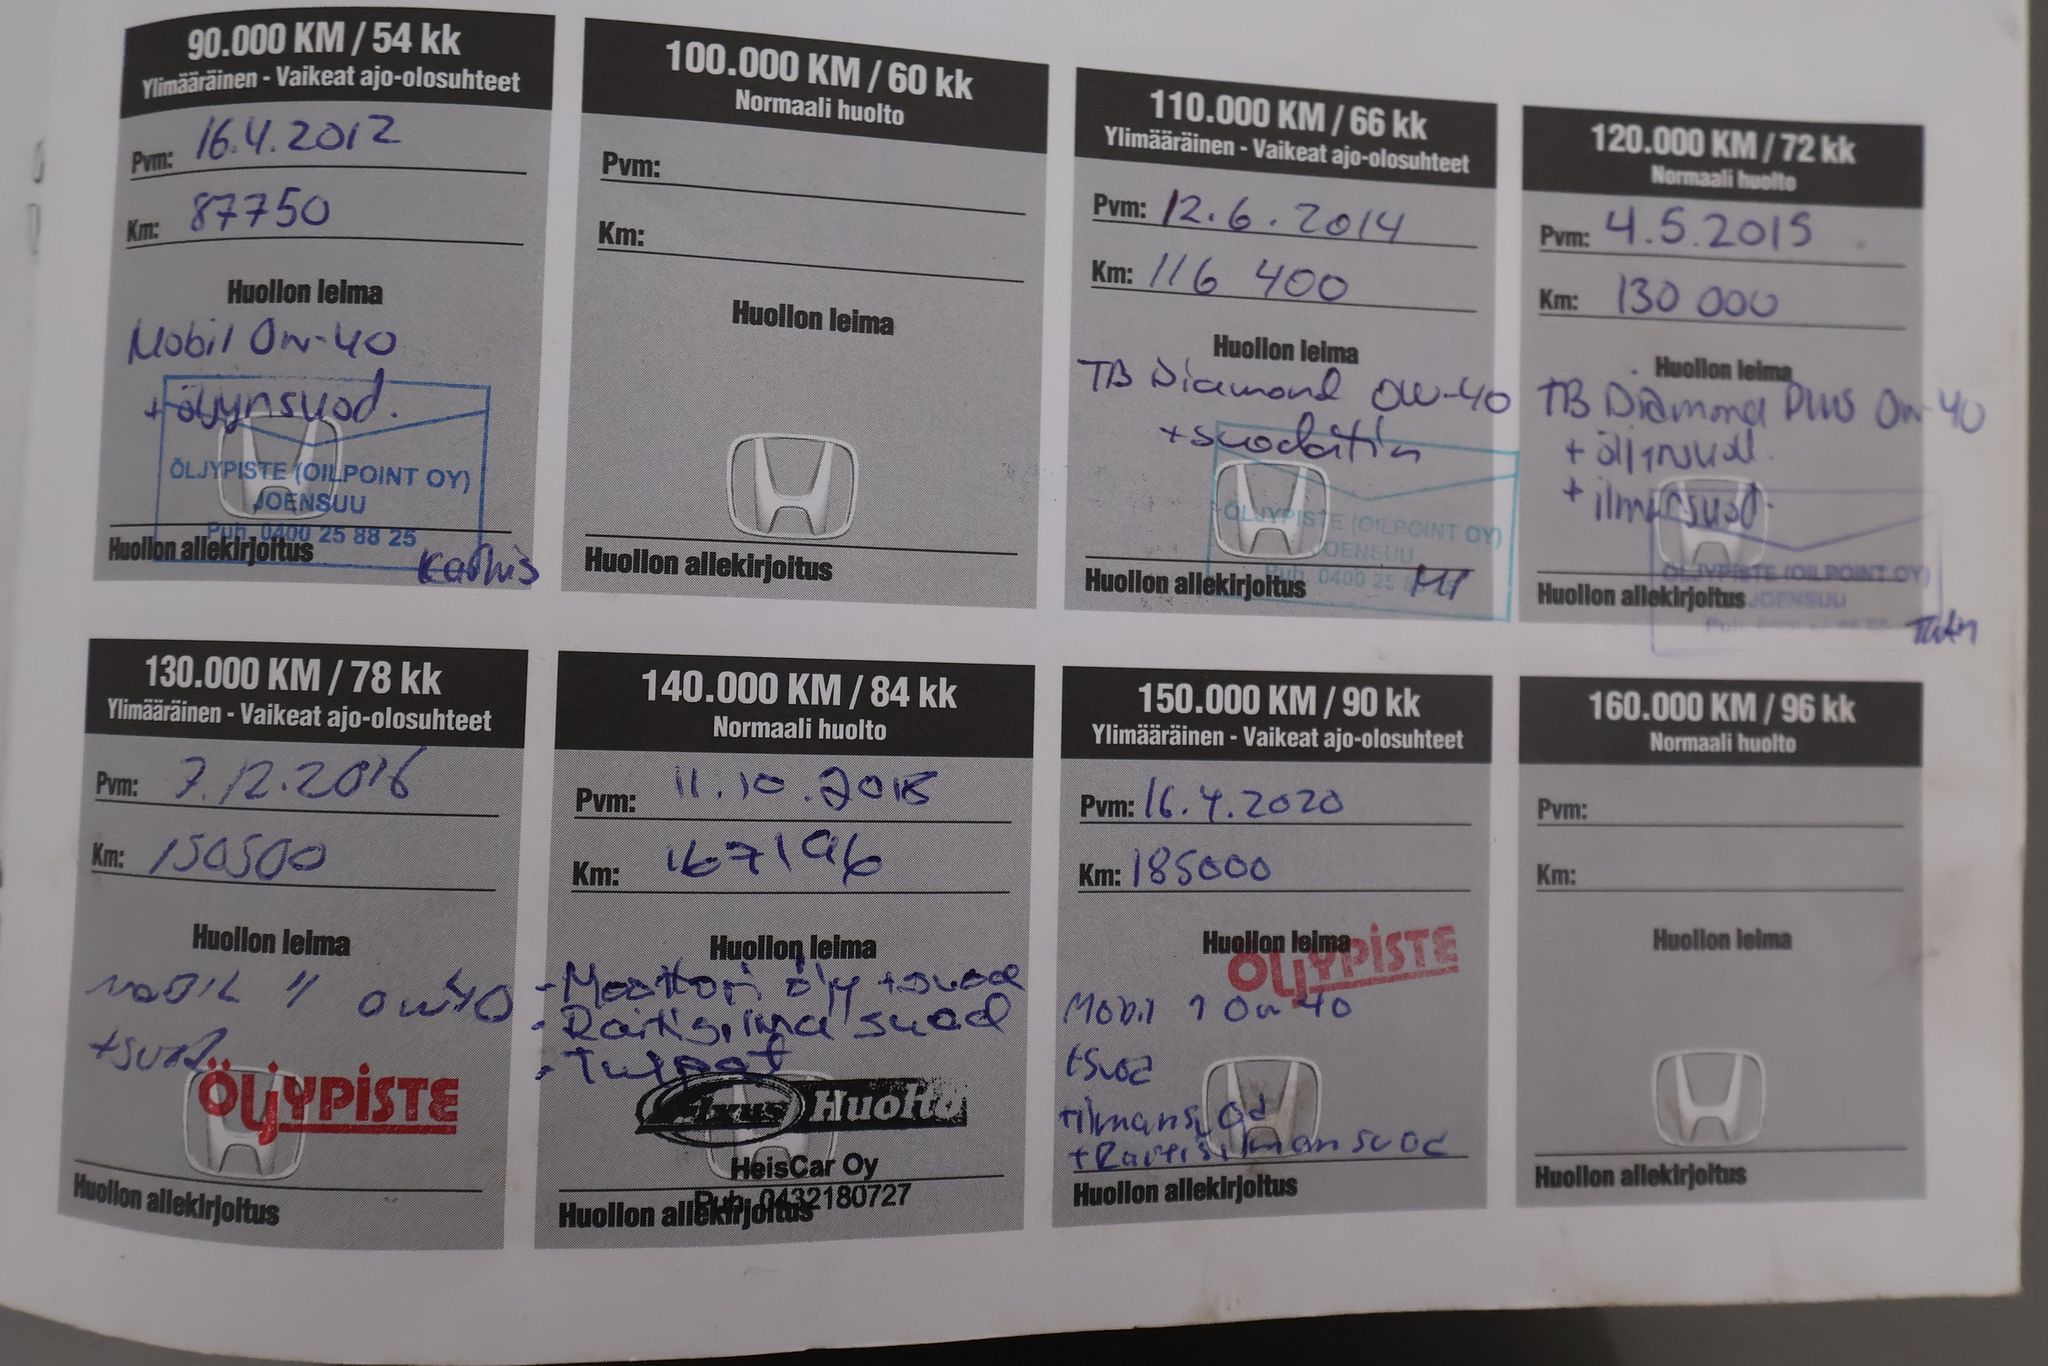 90.000 KM / 54 kk
Ylimääräinen - Vaikeat ajo-olosuhteet
Pvm: 16.4.2012
Km: 87750
Huollon leima
Mobil 0w-40
+ öljynsuod.
ÖLJYPISTE (OILPOINT OY)
JOENSUU
Puh. 0400 25 88 25
Huollon allekirjoitus
100.000 KM / 60 kk
Normaali huolto
Pvm:
Km:
Huollon leima
Huollon allekirjoitus
110.000 KM / 66 kk
Ylimääräinen - Vaikeat ajo-olosuhteet
Pvm: 12.6.2014
Km: 116 400
Huollon leima
TB Diamond 0W-40
+ suodatin
ÖLJYPISTE (OILPOINT OY)
JOENSUU
Puh. 0400 25
Huollon allekirjoitus
120.000 KM / 72 kk
Normaali huolto
Pvm: 4.5.2015
Km: 130 000
Huollon leima
TB Diamond PLUS 0w-40
+ öljynsuod.
+ ilmansuod.
ÖLJYPISTE (OILPOINT OY)
JOENSUU
Huollon allekirjoitus
130.000 KM / 78 kk
Ylimääräinen - Vaikeat ajo-olosuhteet
Pvm: 7.12.2016
Km: 150500
Huollon leima
MOBIL 1 0w40
+suod
ÖLJYPISTE
Huollon allekirjoitus
140.000 KM / 84 kk
Normaali huolto
Pvm: 11.10.2018
Km: 167196
Huollon leima
- Moottori öljy + suod
- Raitisilma suod
- Tulpat
Fixus Huolto
HeisCar Oy
Puh. 0432180727
Huollon allekirjoitus
150.000 KM / 90 kk
Ylimääräinen - Vaikeat ajo-olosuhteet
Pvm: 16.4.2020
Km: 185000
Huollon leima
ÖLJYPISTE
Mobil 1 0w 40
+suod
+ilmansuod
+Raitisilmansuod
Huollon allekirjoitus
160.000 KM / 96 kk
Normaali huolto
Pvm:
Km:
Huollon leima
Huollon allekirjoitus